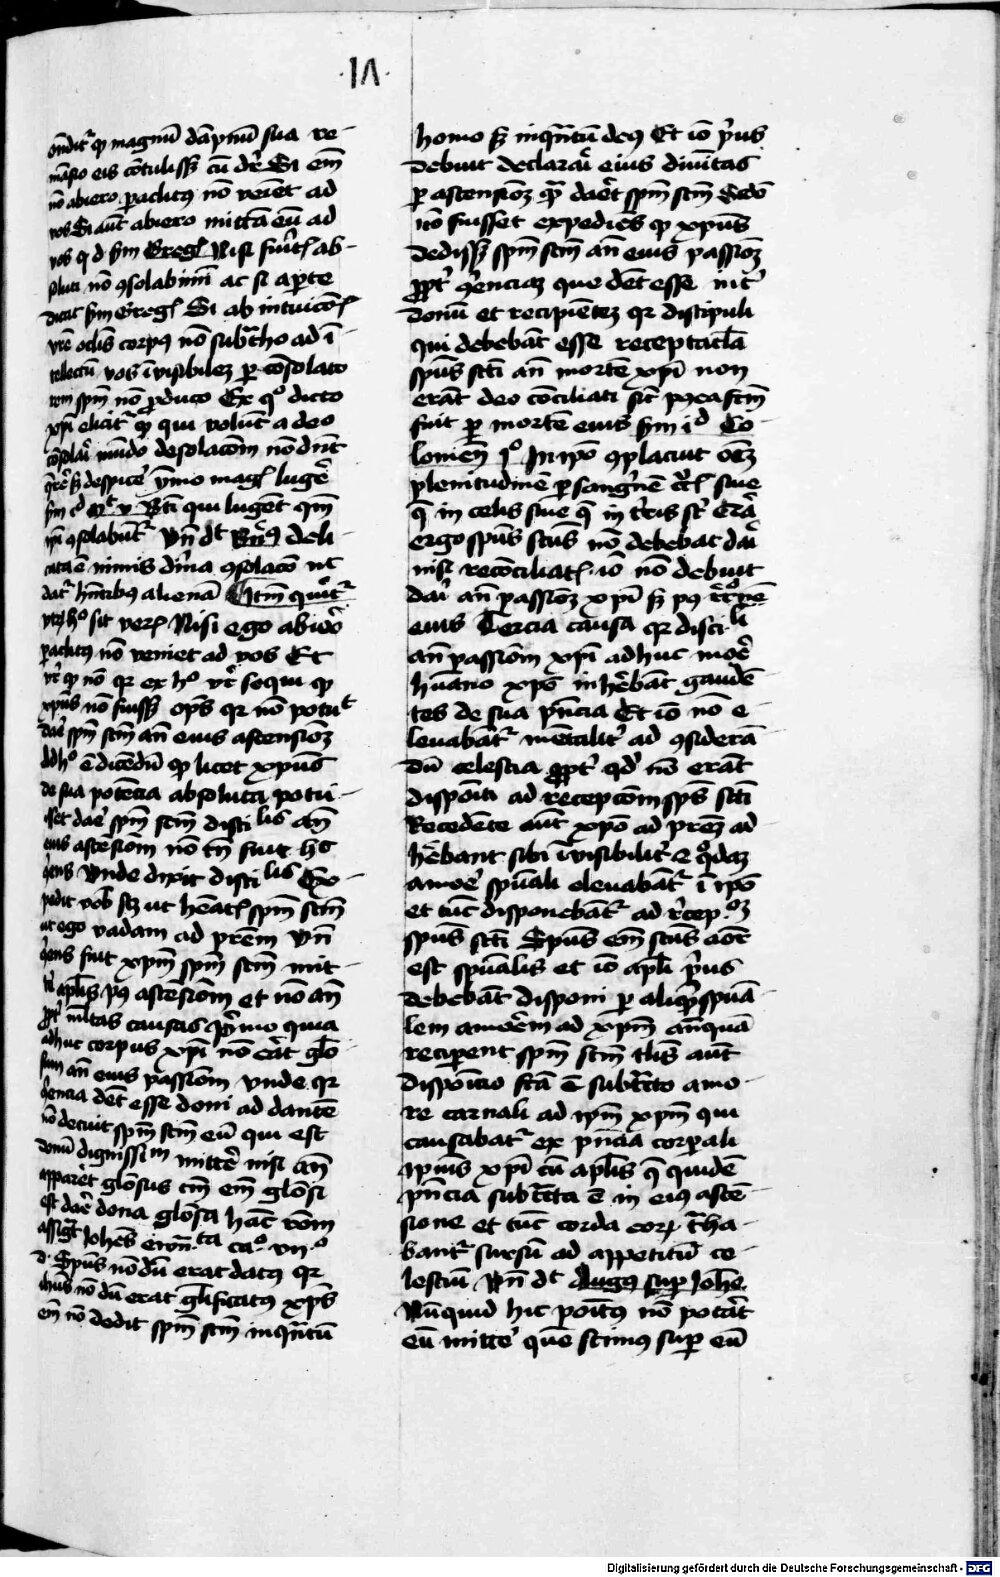 ·IV·
ondit' qp magnū dāpnū sua re-
māsio eis cōtulissz cū dr̄ Si em̄
nō abiero paclitꝯ nō veniet ad
vos Si aut abiero mittā eū ad
vos q d sm̄ Greg' Nisi fuūt' ab-
soluti nō ꝯsolabimī ac si apte
dicat sm̄ Greg' Si ab intuicōe
vr̄e oclis corpꝯ nō subtͣho ad ī
tellectū vos īvisibilez p cōsolato
rem spm̄ nō pduco Ex qͦ dicto
xpī elicit' qp qui volūt a deo
cōsolari mūdo desolacōm nō dnt
q̄rē sz despicē ymo mag' lugē
sm̄ id Mt v Bti qui lugēt qm̄
ipī ꝯsolabūt' Vn̄ dt Bn̄ꝯ deli-
cata ē nimis dīna ꝯsolacō nc
dat' hn̄tibꝯ alienā Itm̄ quīt'
vtꝝ hͦ sit veꝝ Nisi ego abiero
paclitꝯ nō veniet ad vos Et
vr̄ qp nō qr ex hͦ vr̄ sequi qp
xpūs nō fuissz ops qr nō potuͭ
dare spm̄ scm̄ an̄ euis ascensioz
Ad hͦ ē dicendū qp licet xpus
de sua potēcia absoluta potu-
isset dare spm̄ scm̄ disci lis an̄
euis ascēsiōm nō tn̄ fuit hͦ
ꝯgēns Vnde dixit disci lis Expe
pedit vob̄ scz ut hēat' spm̄ scm̄
ut ego vadam ad prēm Vn̄
ꝯgēns fuit xpm̄ spm̄ scm̄ mit-
te' aplis pꝯ ascēsiōm et nō an̄
ppt' mltas causas Primo quia
adhuc corpus xpī nō erat glo-
sum an̄ eius passiōm vnde qr
ꝯgencia det esse doni ad dantē
nō decuit spm̄ scm̄ eū qui est
donū dignissim mitte' nisi an̄
apparēt glōsus cm̄ em̄ glōsi
est dare dona glōsa hāc rōm
assigͣt Johēs ewͣn·ta caͦ· vii·ͦ
d· Spūs nōdū erat datꝯ qr
ihūs nōdū erat gl'ificatꝯ xps
em̄ nō dedit spm̄ scm̄ inqͣtū
homo sz inqͣtū deꝯ Et iō prꝯ
debuit declarari eius diuitas
p ascensioz qͣ daret spm̄ scm̄ Secdo
nō fuisset expediēs qp xpūs
dedissz spm̄ scm̄ an̄ euis passioz
ppt' ꝯgenciaz que det esse int'
donū et recipiētez qr discipuli
qui debebāt esse receptacla
spūs scti an̄ mortē xpī non
erāt deo cōciliati sic' pꝯea fcm
fuit p mortē euis sm̄ id Co-
losseñ iͦ In ipō ꝯplacuit oēz
plenitudinē p sangnē cͨ sue
q̄ in celis siue q̄ in t'ris st' Erā
ergo spūs sctūs nō debebat dari
nisi recōciliat' iō nō debuit
dari an̄ passioz xpī sz pꝯ
euis Tercia causa qr disci li
an̄ passiōm xpī adhuc more'
hūano xpō inhēbāt gaudē-
tes de sua pn̄cia Et iō nō e-
leuabāt' mētalit' ad ꝯsiderā
dū celestia ppt' qd' nō erāt
dispoiti ad recepcōm sps scti
Recedēte aut xpō ad prēz ad
hēbant sibi īvisibilit' ꝯ qͦdaz
amore' spūali eleuabāt' ī ipō
et tūc disponebāt' ad rcep·ōz
spūs scti Spūs em̄ sctūs aōr
est spūalis et iō apli prꝯ
debebāt disponi p aliqͣ spuā-
lem amorem ad xpm̄ an̄quā
recipent spm̄ scm̄ tlis aut
dispoicio fcā ē subtͣcto amo-
re carnali ad ipm̄ xpm̄ qui
causabat' ex pn̄cia corpali
ipiꝯ xpī cū aplis q̄ quidē
pn̄cia subtͣcta ē in eiꝯ ascē-
sione et tūc corda eoꝝ trͣha-
bant' sursū ad appetitū ce-
lestiū Vn̄ dt Augꝯ sup Johē
Nūquid hic positꝯ nō potāt
eū mitte' quē scimꝯ sup eū
Digitalisierung gefördert durch die Deutsche Forschungsgemeinschaft - DFG